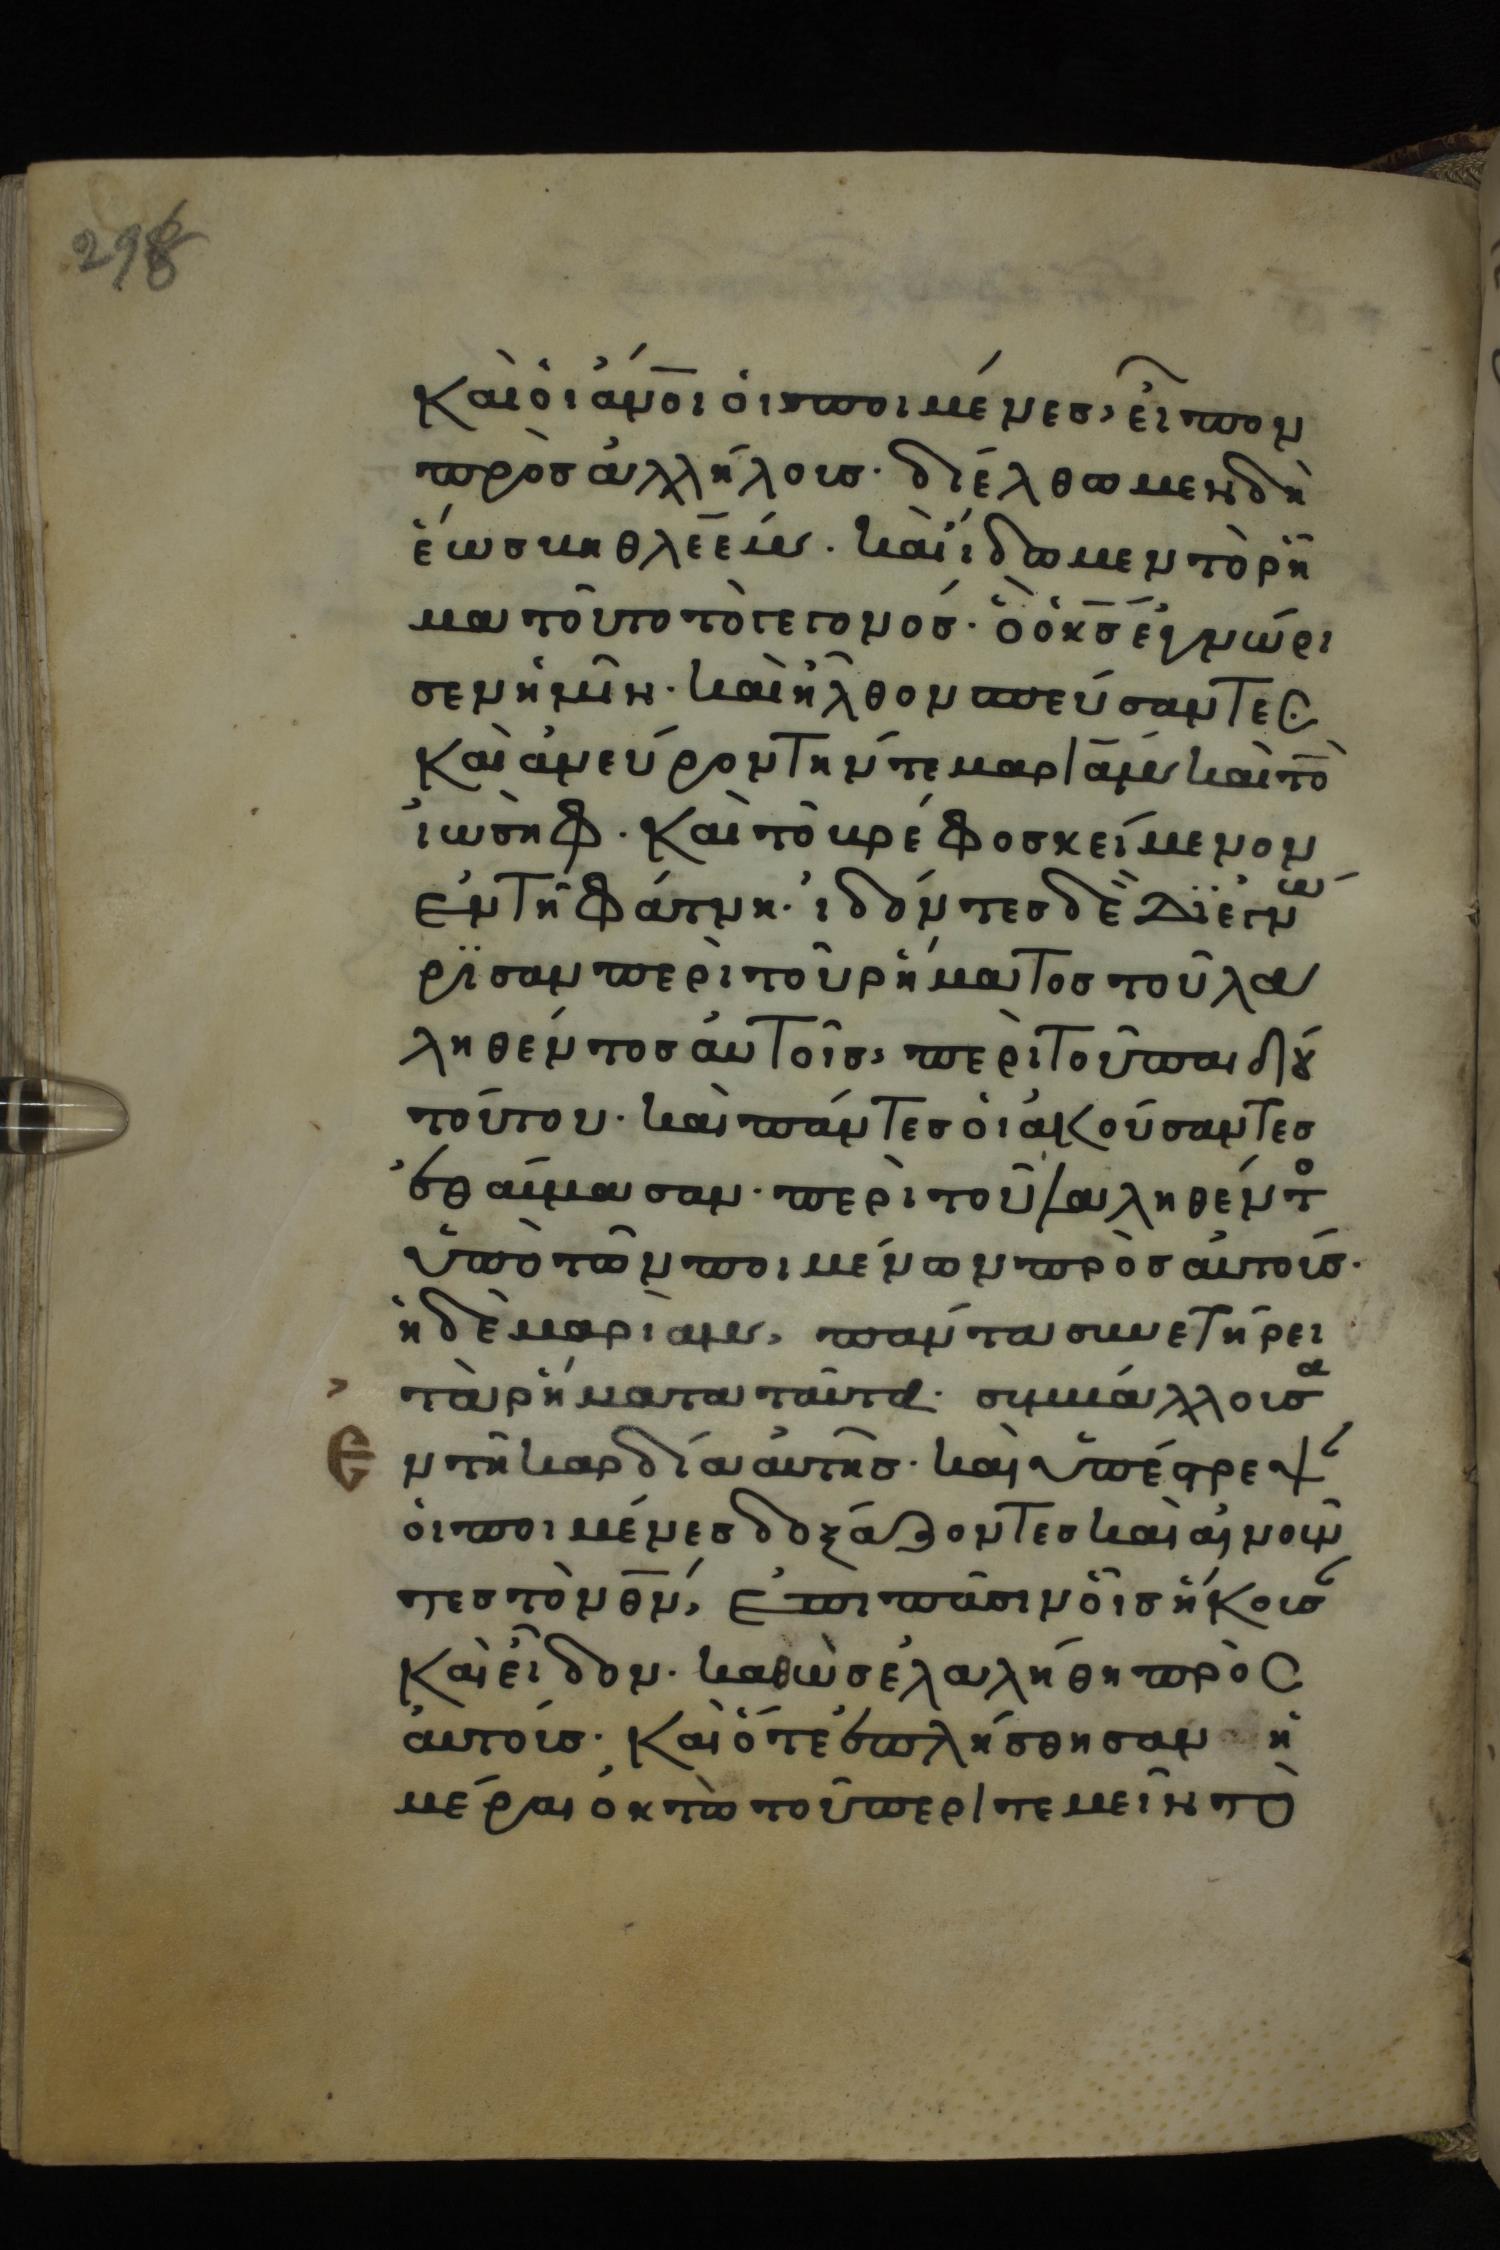 298
Καὶ ὁι ἄν̅ο̅ι ὁι ποιμένες, εἶπον
πρὸς ἀλλήλους· διέλθωμεν δὴ
ἕως βηθλεὲμ· καὶ ἴδωμεν τὸ ῥῆ
μα τοῦτο τὸ γεγονός· ὃ ὁ κ̅ς̅ ἐγνώρι
σεν ἡμῖν· καὶ ἦλθον σπεύσαντες
Καὶ ἀνεύρον τήν τε μαριάμ καὶ τὸ
ἰωσὴφ· Καὶ τὸ βρέφος κείμενον
ἐν τῆ φάτνη· ἰδόντες δὲ διεγνώ
ρϊσαν περὶ τοῦ ῥήματος τοῦ λα
ληθέντος ἀυτοῖς, περὶ τοῦ παιδίου
τούτου· καὶ πάντες ὁι ἀκούσαντες
ἐθαύμασαν· περὶ τοῦ λαληθέντο
ὑπὸ τῶν ποιμένων πρὸς ἀυτούς·
ἡ δὲ μαριὰμ, πάντα συνετήρει
τὰ ῥήματα ταῦτα· συμβάλλουσα
Εν τῆ καρδία ἀυτῆς· καὶ ὑπέστρεψ
ὁι ποιμένες δοξάζοντες καὶ αἰνοῦν
τες τὸν θ̅ν̅, ἐπὶ πᾶσιν ὁῖς ἤκουσ
Καὶ εἶδον· καθὼς ἐλαλήθη πρὸς
ἀυτούς· Καὶ ὅτε ἐπλήσθησαν ἡ
μέραι ὀκτὼ τοῦ περιτεμεῖν τὸ